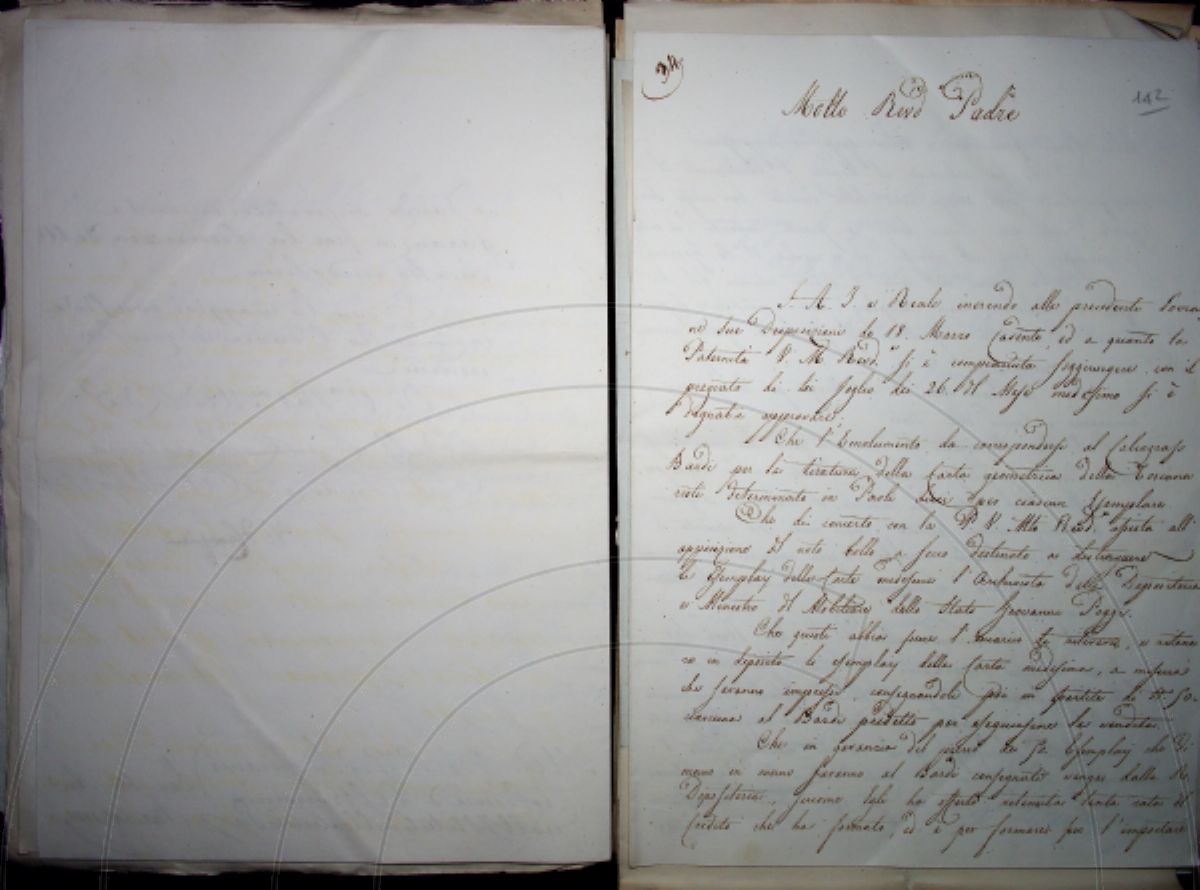 34
142
Molto Revdo Padre
S. A. I. e Reale inerendo alle precedenti Sovra
ne sue Disposizioni de 18. Marzo cadente, ed a quanto la
Paternità V. M. Revda si è compiaciuta soggiungere con il
pregiato di lei foglio dei 26. del Mese medesimo si è
degnata approvare
Che l'Emolumento da corrispondersi al Calcografo
Bardi per la tiratura della Carta geometrica della Toscana
resti determinato in Paoli dieci per ciascun Esemplare
Che di concerto con la P. V. Mto Revda assista all'
apposizione del noto bollo a secco destinato a
le Esemplari della Carta medesima l'Archivista della Depositeria
e Ministro del Militare dello Stato Giovanni Poggi.
Che questi abbia pure l'incarico di ritirare, e ritene
re in deposito le esemplari della Carta medesima, a misura
che saranno impressi, consegnandole poi in partite di N. 50.
al Bardi predetto per eseguirsene la vendita.
Che in garanzia del prezzo dei 50. Esemplari che di
mano in mano saranno al Bardi consegnati venga dalla R.
Depositeria, siccome egli ha offerto ritenuta tanta rata di
Credito che ha formato, ed è per formarsi per l'importare